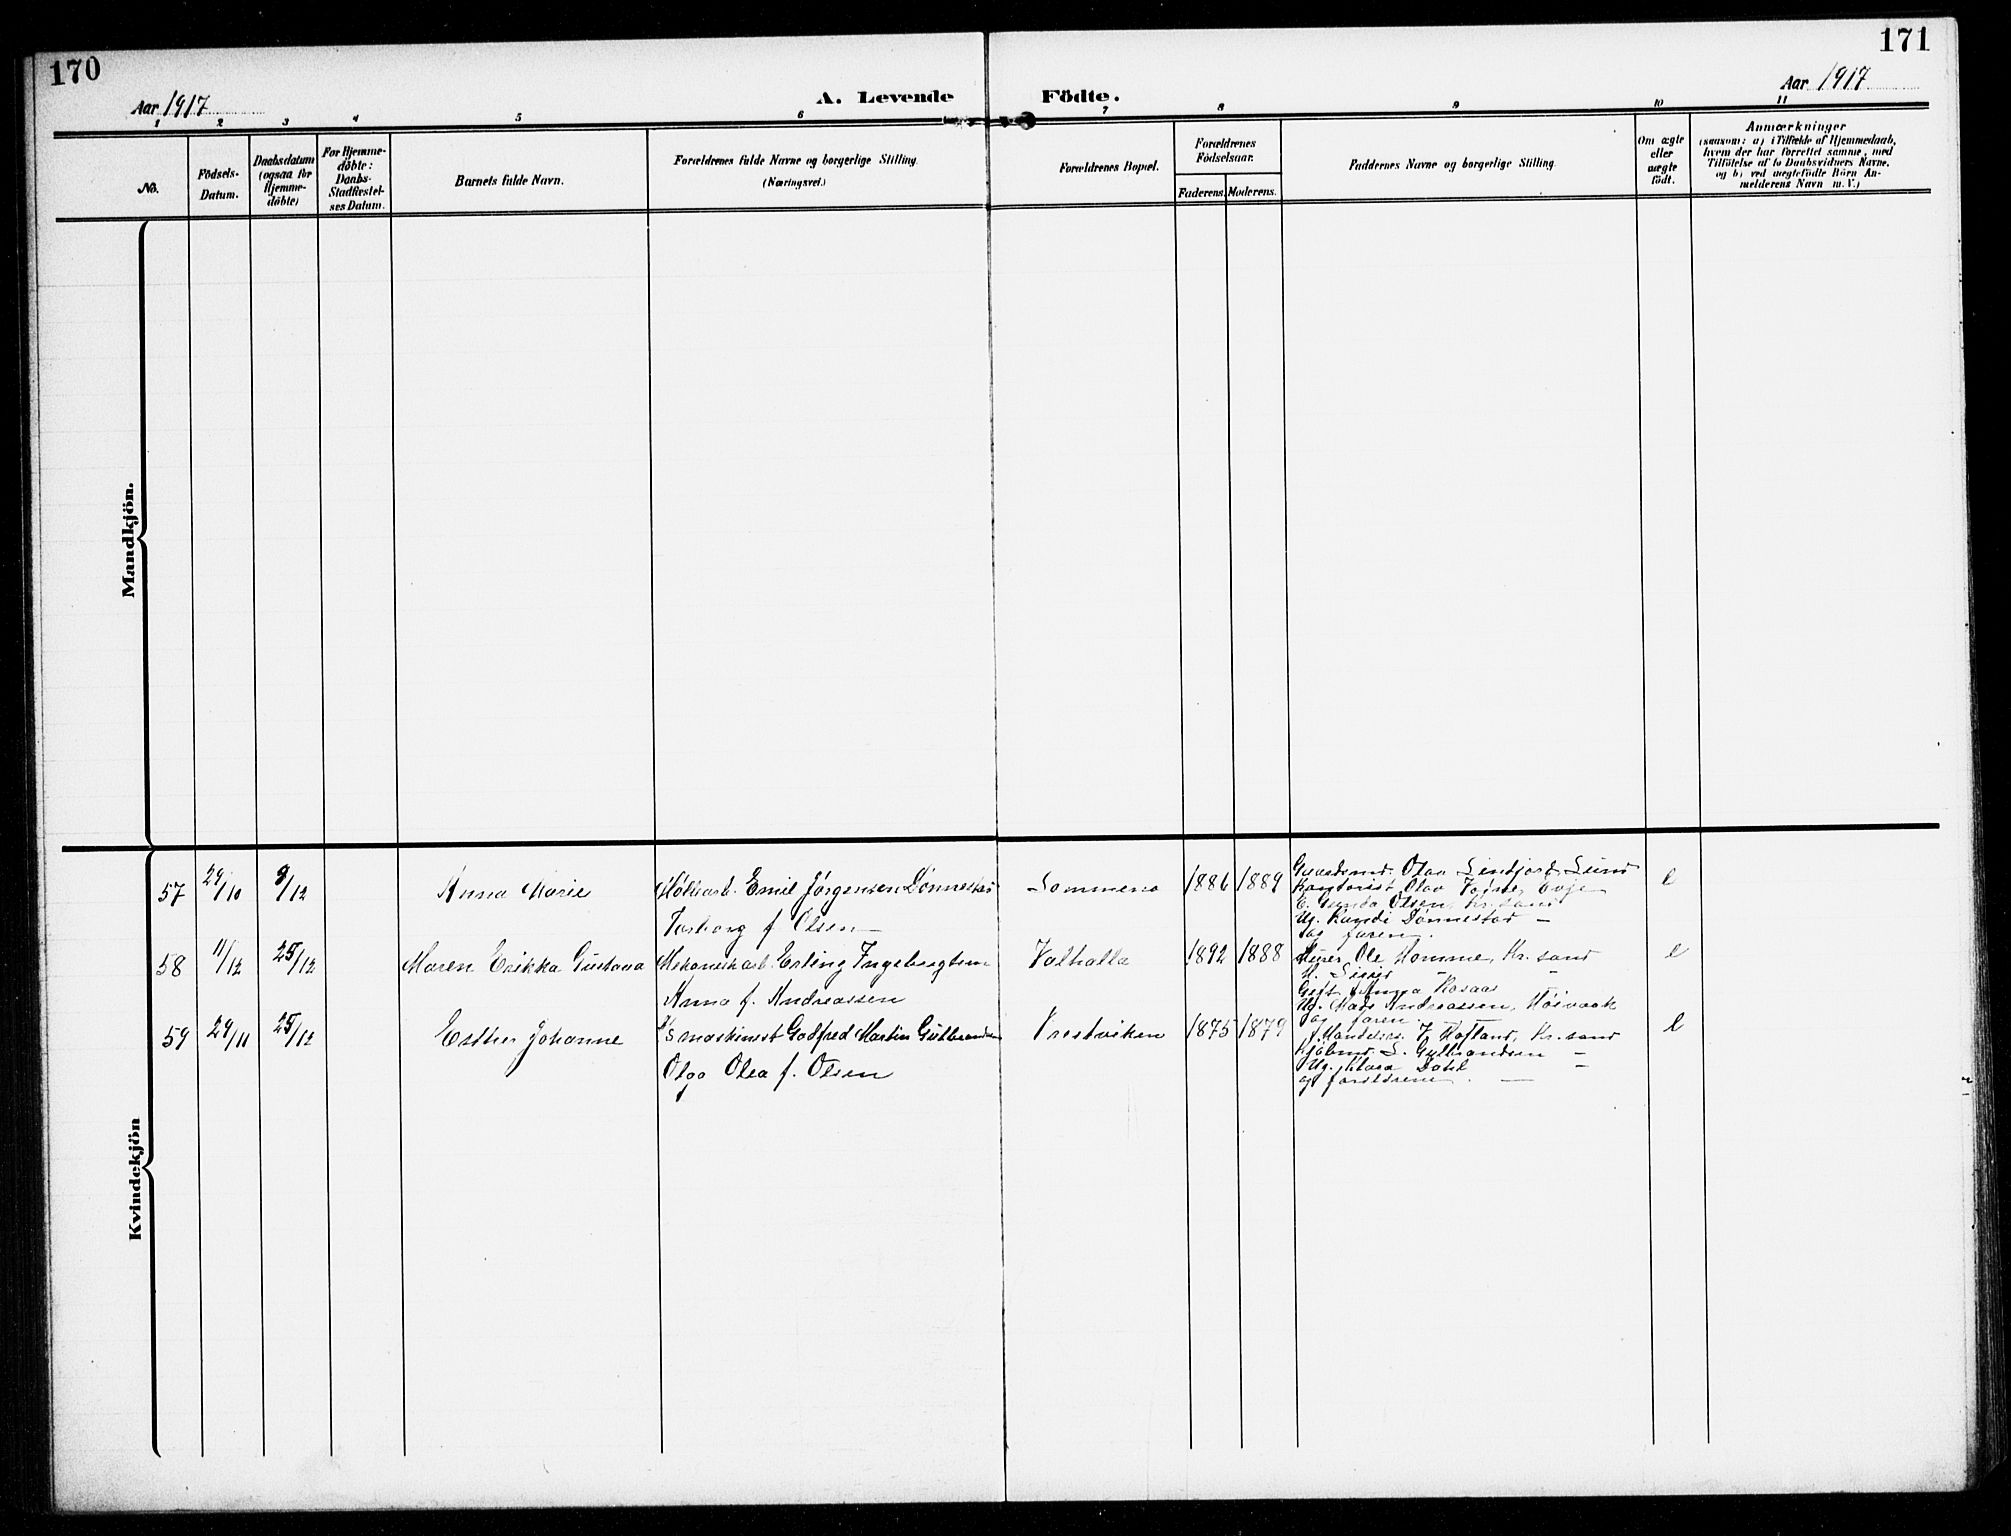 170
171
Aar 1917
A. Levende Födte.
Aar 1917
1 2 3 4 5 6 7 8 9 10 11
No.
Födsels-
Datum.
Daabsdatum
(ogsaa for
Hjemme-
döbte)
For Hjemme-
döbte:
Daabs-
Stadfæstel-
ses Datum.
Barnets fulde Navn.
Forældrenes fulde Navne og borgerlige Stilling.
(Næringsvei.)
Forældrenes Bopæl.
Forældrenes
Födselsaar.
Faderens. Moderens.
Faddernes Navne og borgerlige Stilling.
Om ægte
eller
uægte
födt.
Anmærkninger
(saasom: a) i Tilfælde af Hjemmedaab,
hvem der har forrettet samme, med
Tilföielse af to Daabsvidners Navne,
og b) ved uægtefödte Börn An-
melderens Navn m. V.)
Mandkjön.
Kvindekjön
57 29/10 9/12 Anna Marie
Emil Jörgensen Dönnestad
Torborg f. Olsen
1886 1889
Gaardsmd. Olav Lindjord, Lund
Kontorist Olav Evje
E. Gunda Olsen, Kr.sand
Ug. Randi Dönnestad —
og faren.
58 11/12 25/12 Maren Erikka Gustava
Mekanikarb. Erling Ingebregtsen
Anna f. Andreassen
Valhalla 1892 1888
Murer Ole Homme, Kr.sand
Gift Anna
Ug. Andreassen,
og faren.
59 29/11 25/12 Esther Johanne
maskinist Godfred Martin Gulbrandsen
Olga Olea f. Olsen
Prestviken 1875 1879
Handelsres. J. Hofland, Kr.sand
Kjöbmd. S. Gulbrandsen —
Ug. Klara Dahl —
og forældrene. —